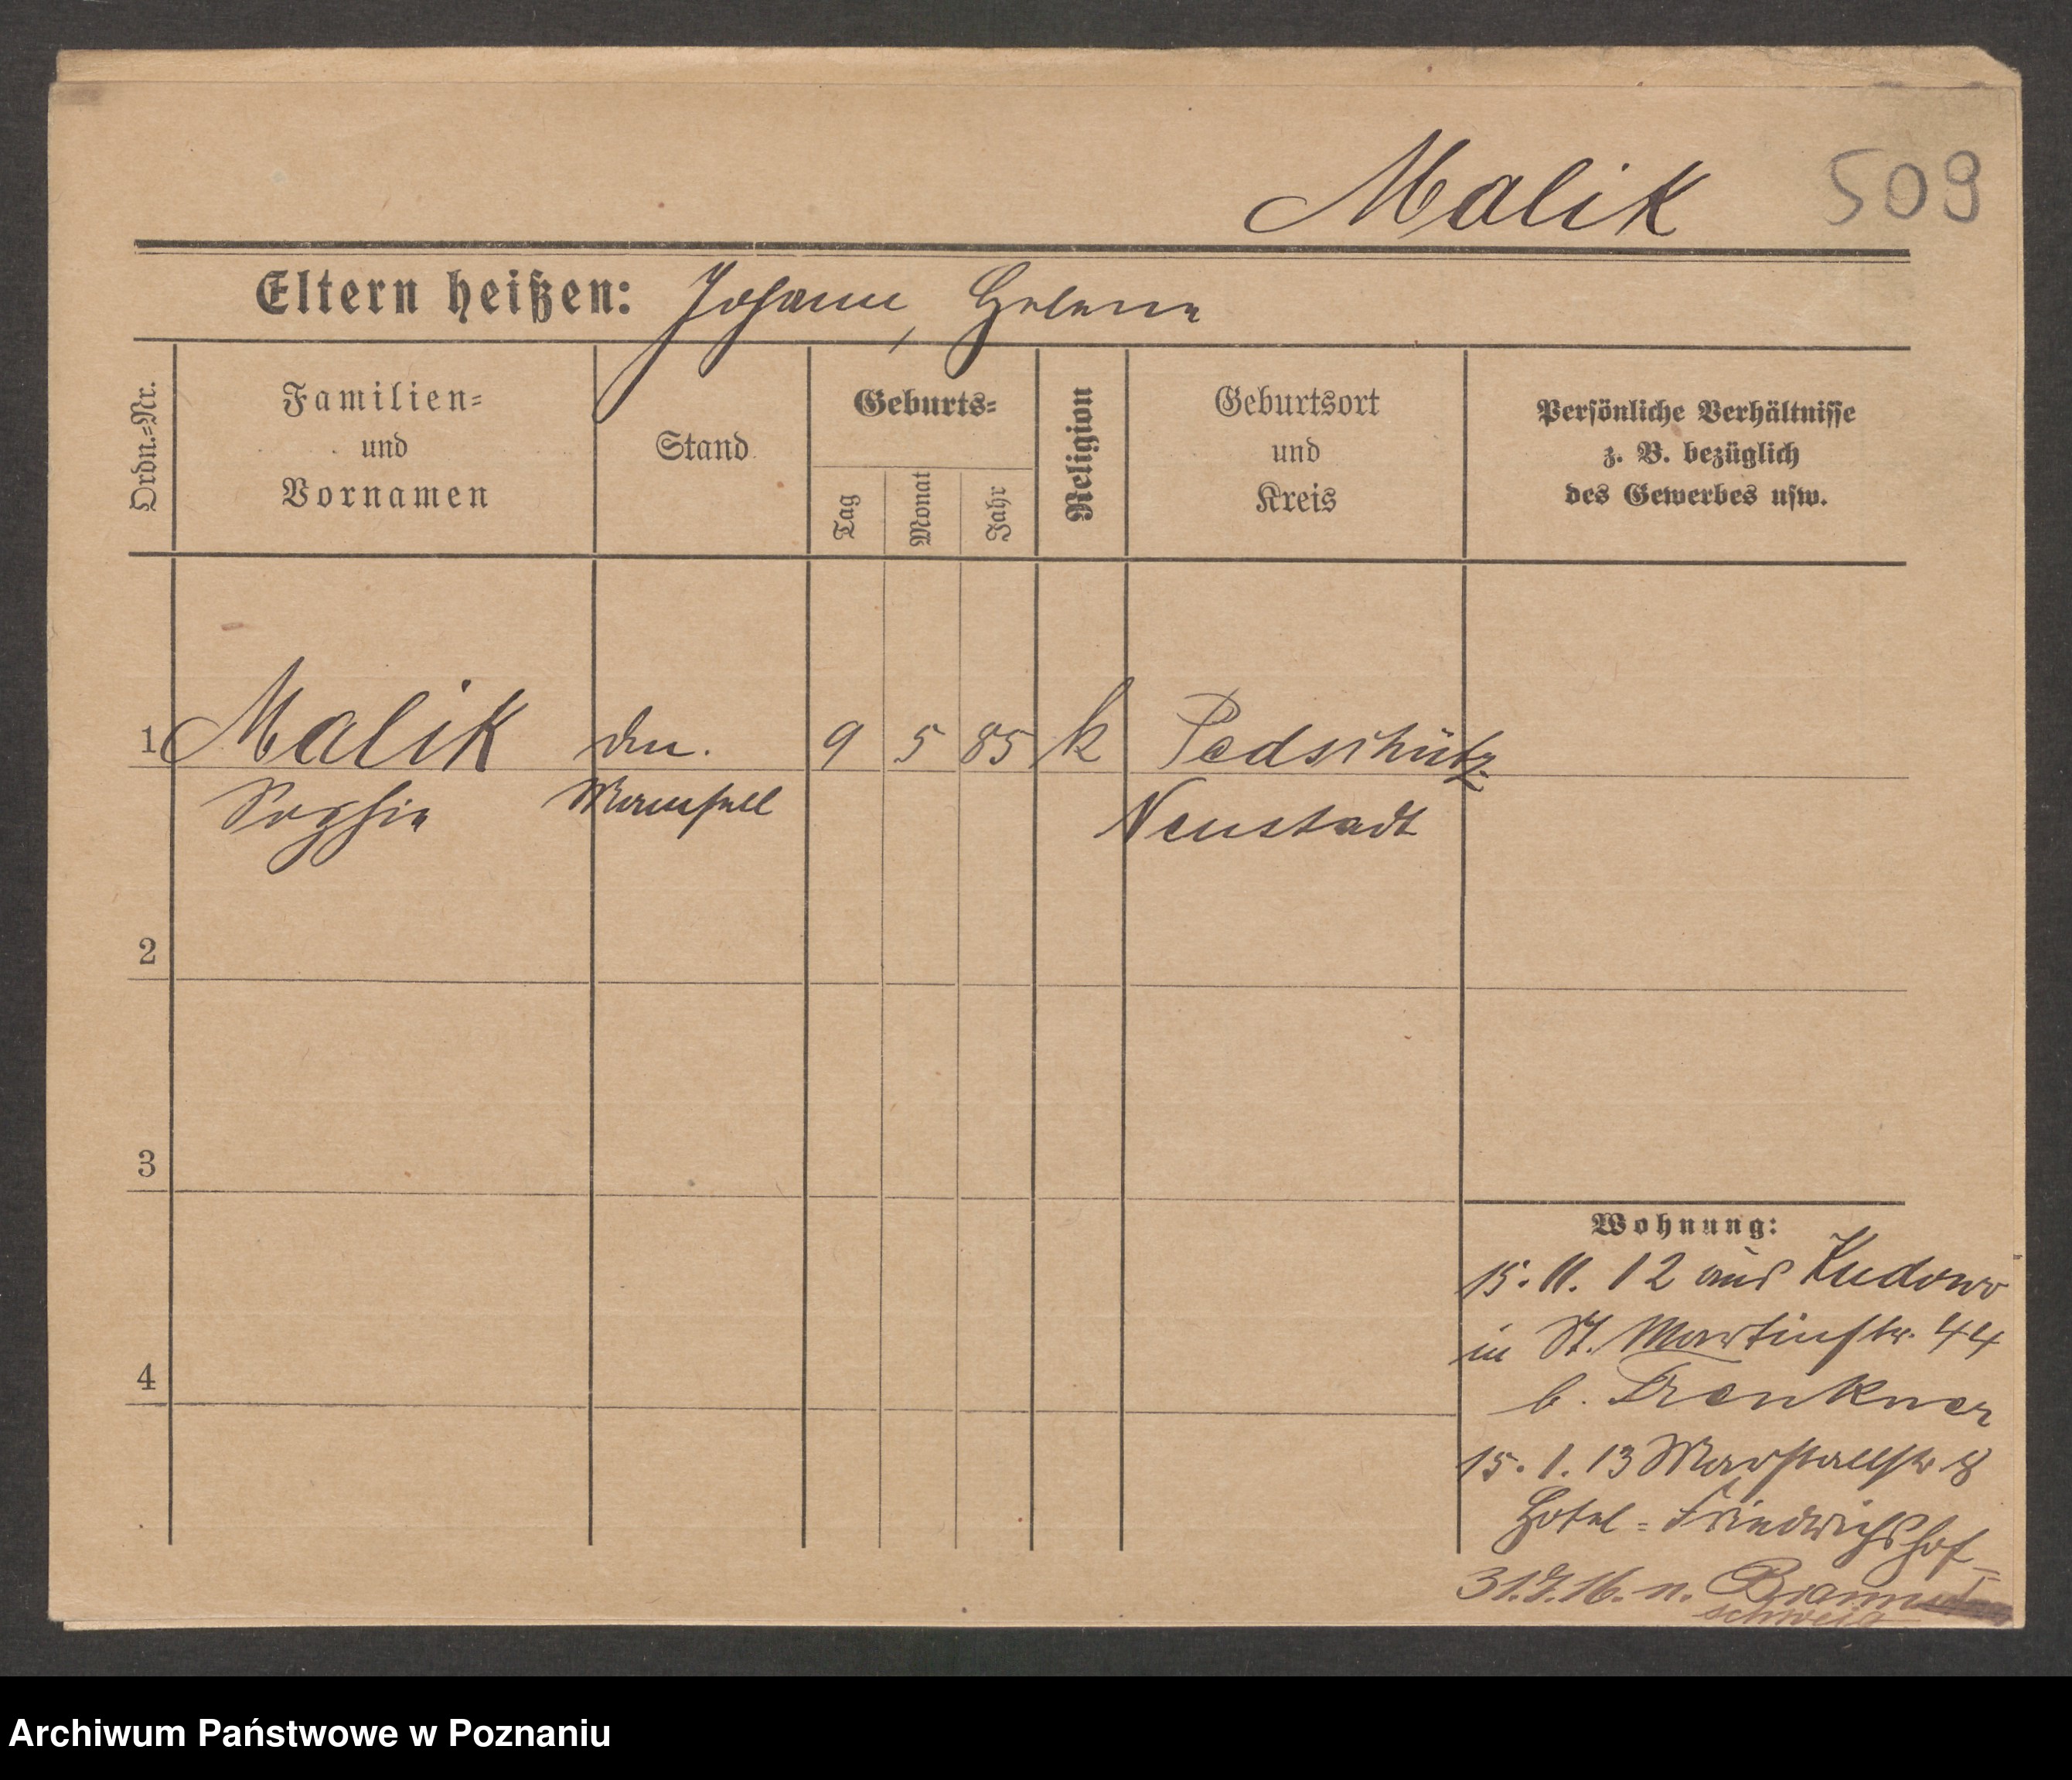 Malik 509
Eltern heißen: Johann, Helene
Ordn.-Nr.
Familien-
und
Vornamen
Stand
Geburts-
Tag
Monat
Jahr
Religion
Geburtsort
und
Kreis
Persönliche Verhältnisse
z. B. bezüglich
des Gewerbes usw.
1 Malik 9 5 85 k Pedschütz
Sophie Mamsell Neustadt
2
3
4
Wohnung:
15. 11. 12 aus Kudowa
in St. Martinstr. 44
b. Trenkner
15. 1. 13 Marstallstr 8
Hotel - Friedrichshof
16. n. Braun
schweig
Archiwum Państwowe w Poznaniu